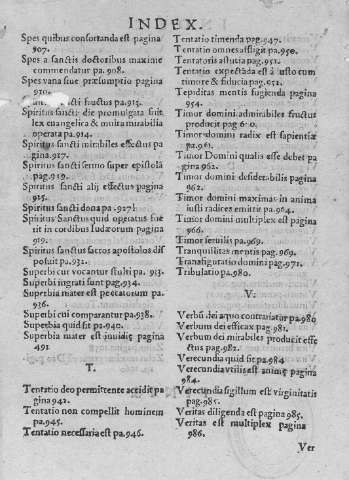 INDEX.
Spes quibus confortanda est pagina
907.
Spes a sanctis doctoribus maxime
commendatur pa.908.
Spes vana siue præsumptio pagina
910.
sancti fructus pa.915.
Spiritus sancti de promulgata fuit
lex euangelica & multa mirabilia
operata pa.914.
Spiritus sancti mirabiles effectus pa
gina.917.
Spiritus sancti sermo super epistola
pag.919.
Spiritus sancti alij effectus pagina
925.
Spiritus sancti dona pa.927.
Spiritus Sanctus quid operatus fue
rit in cordibus Iudæorum pagina
929.
Spiritus sanctus sacros apostolos dis
posuit pa.932.
Superbi cur vocantur stulti pa. 933.
Superbi ingrati sunt pag.934.
Superbia mater est peccatorum pa.
936.
Superbi cui comparantur pa.938.
Superbia quid sit pa.940.
Superbia mater est inuidię pagina
491.
T.
Tentatio deo permittente accidit pa
gina 942.
Tentatio non compellit hominem
pa.945.
Tentatio necessaria est pa.946.
Tentatio timenda pag.947.
Tentatio omnes affligit pa.950.
Tentatoris astucia pag.951.
Tentatio expectāda est à iusto cum
timore & fiducia pag.951.
Tepiditas mentis fugienda pagina
954.
Timor domini admirabiles fructus
producit pag.960.
Timor domini radix est sapientiæ
pa.961.
Timor Domini qualis esse debet pa
gina 962.
Timor domini desiderabilis pagina
962.
Timor domini maximas in anima
iusti radices emittit pa.964.
Timor domini multiplex est pagina
966.
Timor seruilis pa.969.
Tranquilitas mentis pag.969.
Transfiguratio domini pag.971.
Tribulatio pa.980.
V.
Verbū dei a quo contrariatur pa.980
Verbum dei efficax pag.981.
Verbum dei mirabiles producit effe
ctus pag.982.
Verecundia quid sit pa.984
Verecundia vtilis est animę pagina
984.
Verecundia sigillum est virginitatis
pag.985.
Veritas diligenda est pagina 985.
Veritas est multiplex pagina
986.
Ver